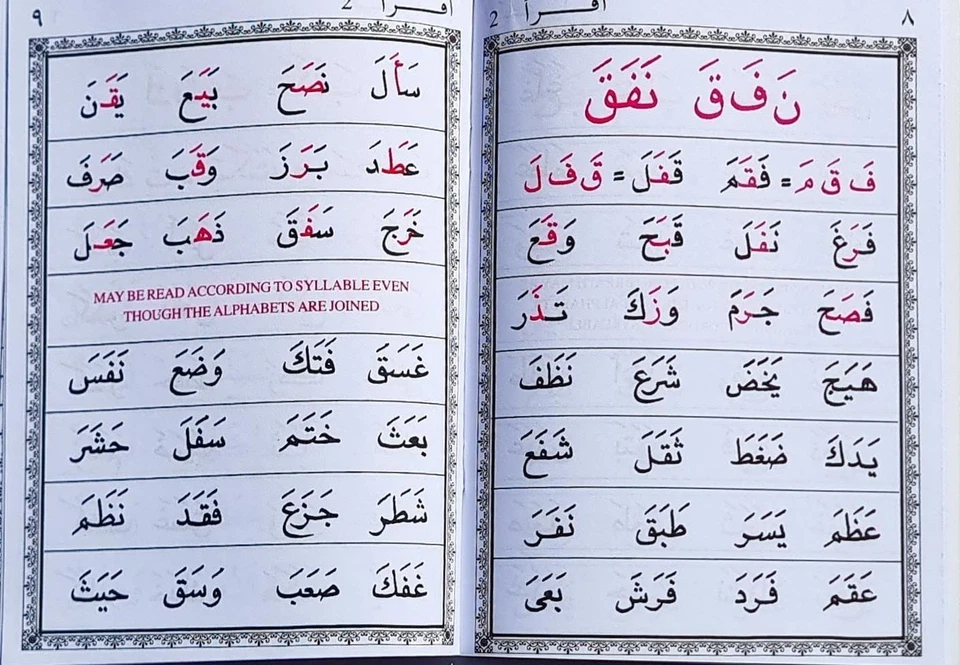 ٨
اقرأ 2
نَ فَ قَ نَفَقَ
فَ قَ مَ = فَقَمَ قَفَلَ = قَ فَ لَ
فَرَغَ نَفَلَ قَبَحَ وَقَعَ
فَصَحَ جَرَمَ وَزَكَ نَذَرَ
هَيَجَ يَخَضَ شَرَعَ نَظَفَ
يَدَكَ ضَغَطَ ثَقَلَ شَفَعَ
عَظَمَ يَسَرَ طَبَقَ نَفَرَ
عَقَمَ فَرَدَ فَرَشَ بَغَىَ
اقرأ 2
٩
سَأَلَ نَصَحَ بَيَعَ يَقَنَ
عَطَدَ بَرَزَ وَقَبَ صَرَفَ
خَرَجَ سَفَقَ ذَهَبَ جَعَلَ
MAY BE READ ACCORDING TO SYLLABLE EVEN
THOUGH THE ALPHABETS ARE JOINED
غَسَقَ فَتَكَ وَضَعَ نَفَسَ
بَعَثَ خَتَمَ سَفَلَ حَشَرَ
شَطَرَ جَزَعَ فَقَدَ نَظَمَ
غَفَكَ صَعَبَ وَسَقَ حَيَثَ